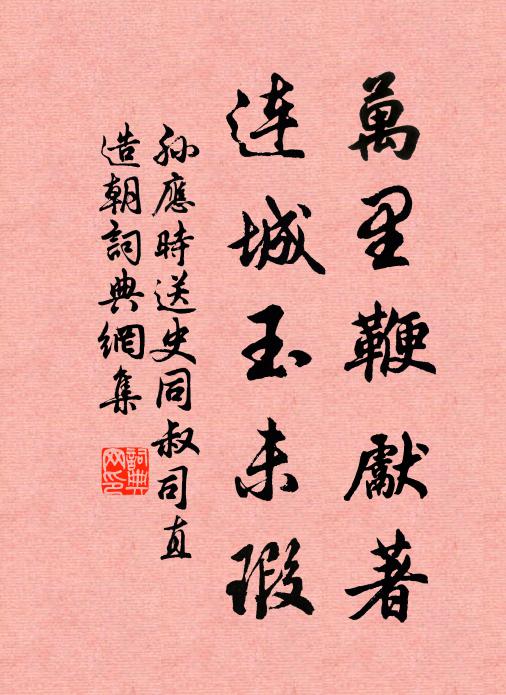 萬里鞭獻著
連城玉未瑕
孫應時送史同叔司直
造朝詞典網集
詞典網印